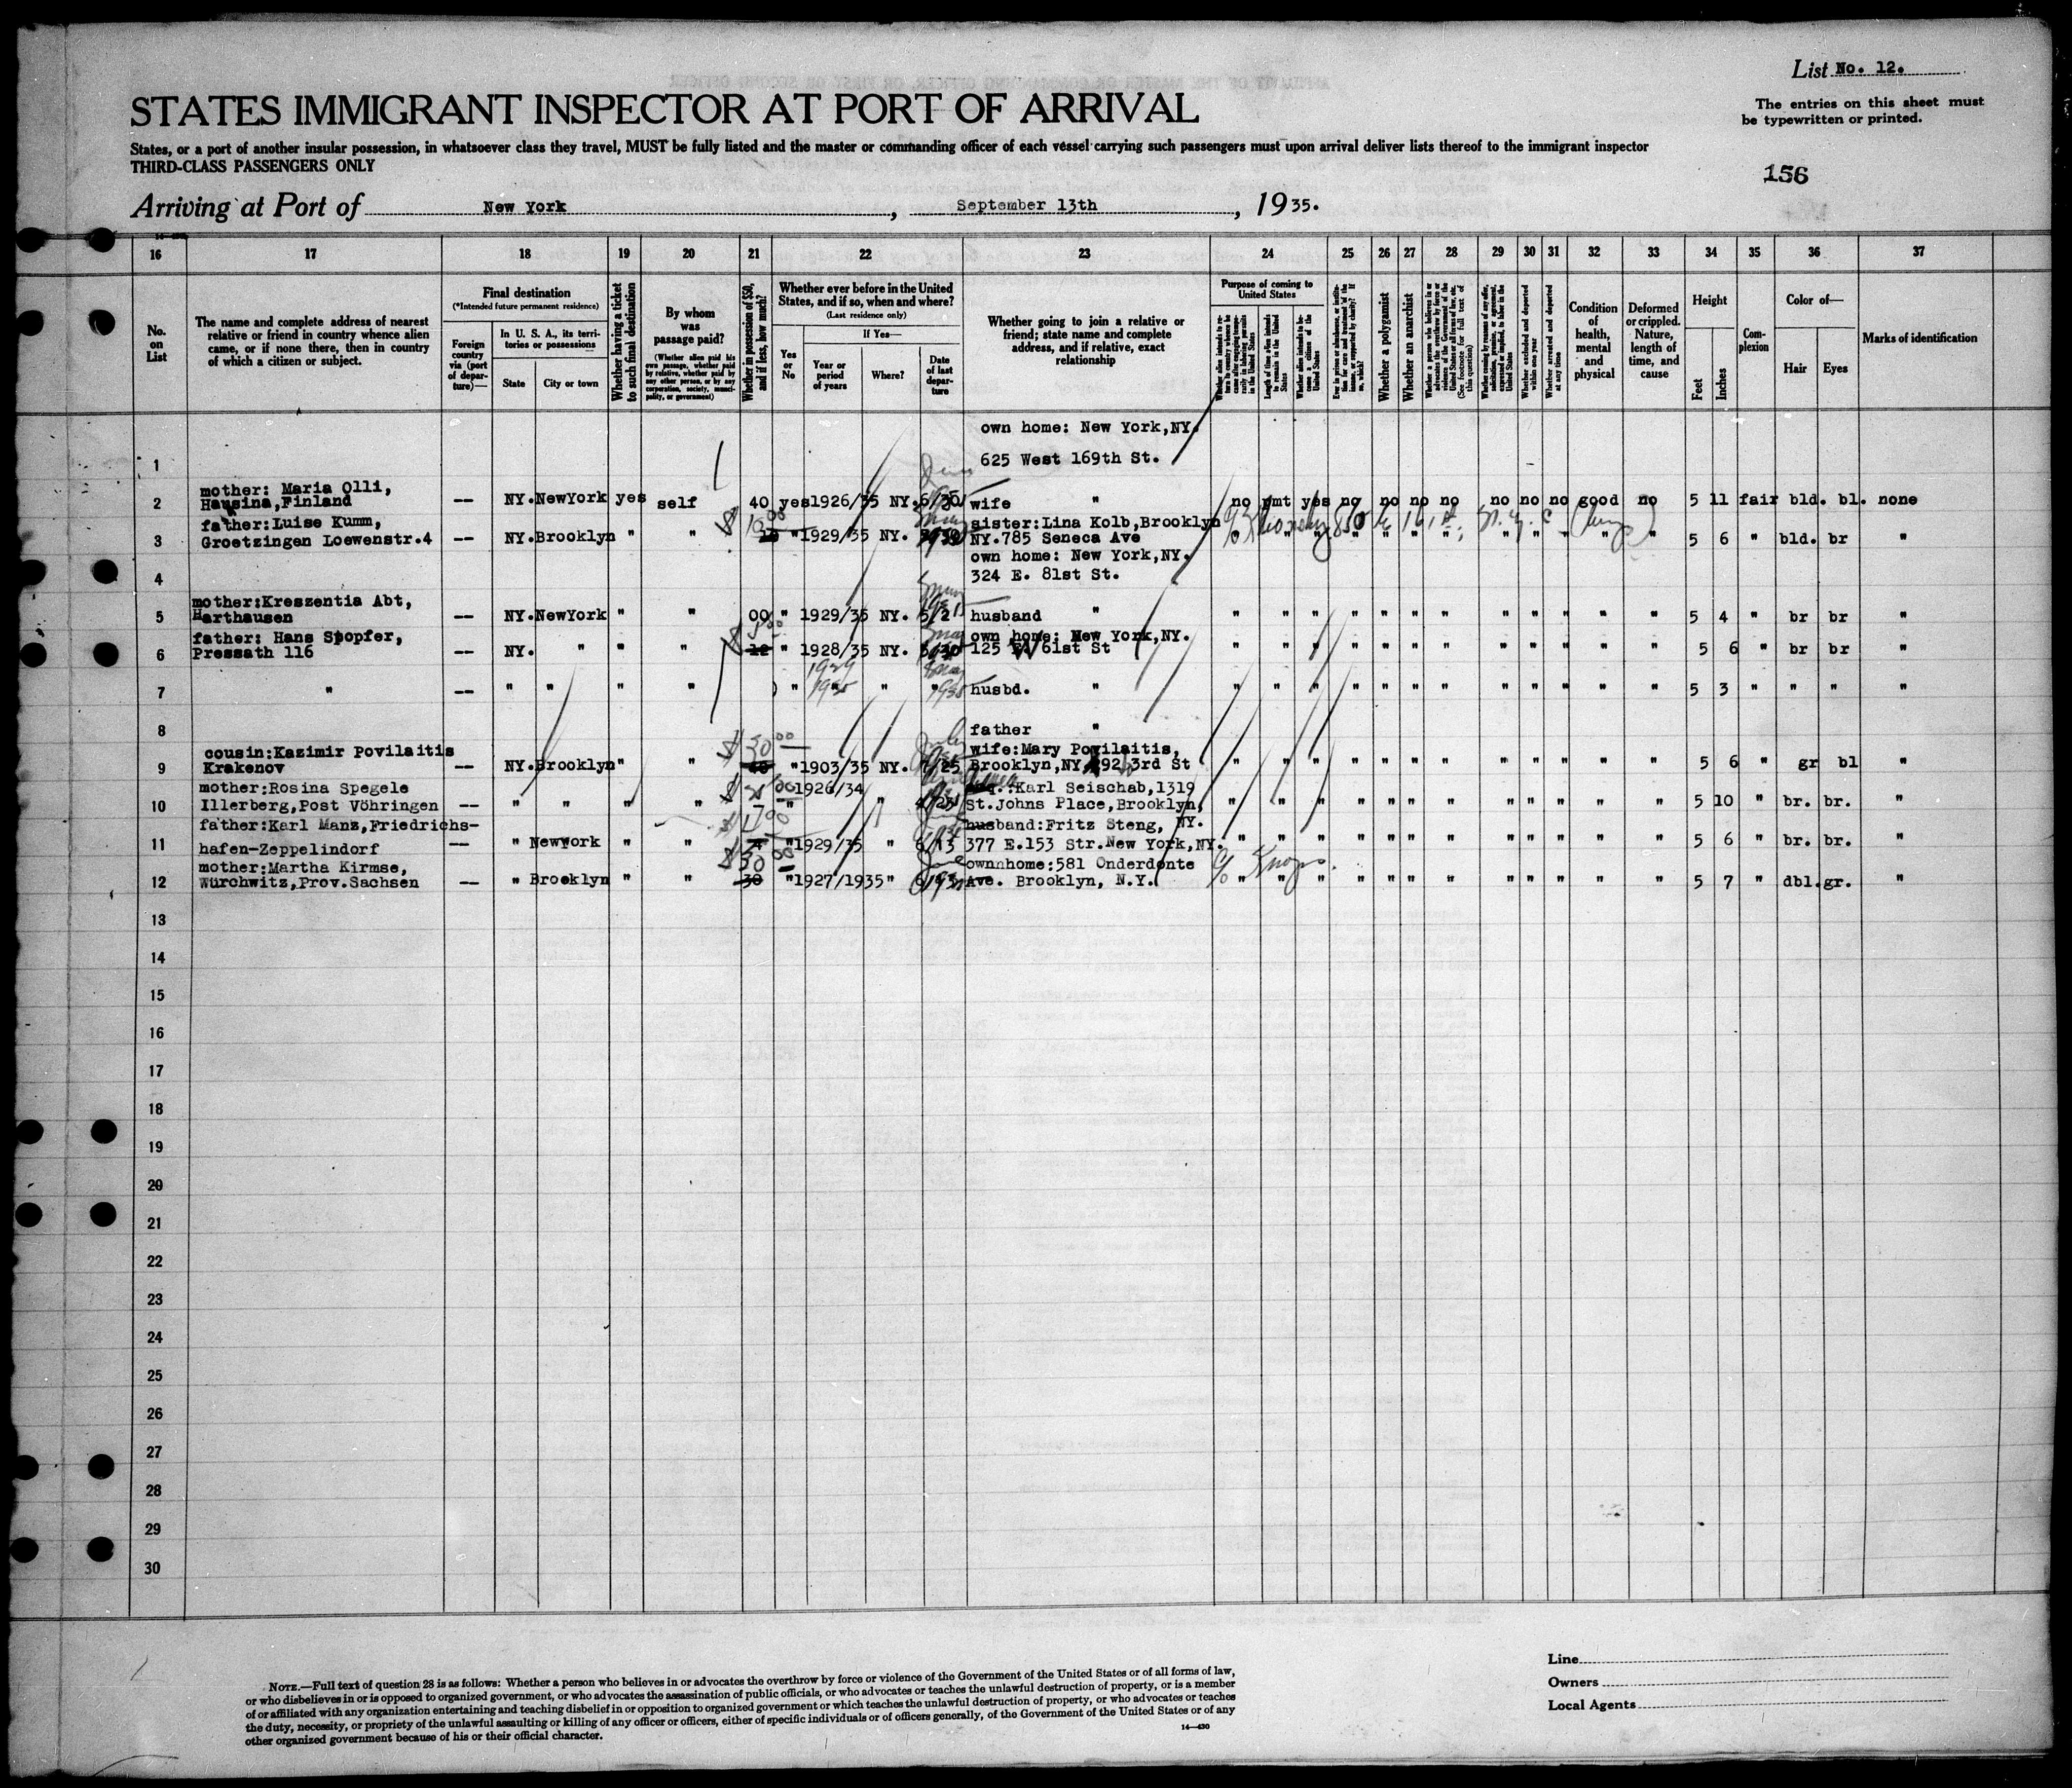 List No. 12.
STATES IMMIGRANT INSPECTOR AT PORT OF ARRIVAL
The entries on this sheet must
be typewritten or printed.
States, or a port of another insular possession, in whatsoever class they travel, MUST be fully listed and the master or commanding officer of each vessel carrying such passengers must upon arrival deliver lists thereof to the immigrant inspector
THIRD-CLASS PASSENGERS ONLY
156
Arriving at Port of New York, September 13th, 1935.
16 17 18 19 20 21 22 23 24 25 26 27 28 29 30 31 32 33 34 35 36 37
No. on List
The name and complete address of nearest relative or friend in country whence alien came, or if none there, then in country of which a citizen or subject.
Final destination
(*Intended future permanent residence)
Foreign country via (port of departure)—
In U. S. A., its territories or possessions
State
City or town
Whether having a ticket to such final destination
By whom was passage paid?
(Whether alien paid his own passage, whether paid by relative, whether paid by any other person, or by any corporation, society, municipality, or government)
Whether in possession of $50, and if less, how much?
Whether ever before in the United States, and if so, when and where?
(Last residence only)
Yes or No
If Yes—
Year or period of years
Where?
Date of last departure
Whether going to join a relative or friend; state name and complete address, and if relative, exact relationship
Purpose of coming to United States
Length of time alien intends to remain in the United States
Whether alien intends to become a citizen of the United States
Whether a polygamist
Whether an anarchist
(See footnote for full text of this question)
Whether excluded and deported within one year
Whether arrested and deported at any time
Condition of health, mental and physical
Deformed or crippled. Nature, length of time, and cause
Height
Feet
Inches
Complexion
Color of—
Hair
Eyes
Marks of identification
own home: New York,NY.
1 625 West 169th St.
mother: Maria Olli,
2 Hausina,Finland -- NY. NewYork yes self 40 yes 1926/35 NY. wife " no pmt yes no no no no no no no good no 5 11 fair bld. bl. none
father:Luise Kumm, sister:Lina Kolb,Brooklyn
3 Groetzingen Loewenstr.4 -- NY. Brooklyn " " " 1929/35 NY. NY.785 Seneca Ave " " " " " " " " " " " " 5 6 " bld. br "
own home: New York,NY.
4 324 E. 81st St.
mother:Kreszentia Abt,
5 Harthausen -- NY. NewYork " " 00 " 1929/35 NY. husband " " " " " " " " " " " " " 5 4 " br br "
father: Hans Spopfer, own home: New York,NY.
6 Pressath 116 -- NY. " " " 12 " 1928/35 NY. 125 W 61st St " " " " " " " " " " " " 5 6 " br br "
7 " -- " " " " " " " " husbd. " " " " " " " " " " " " " 5 3 " " " "
8 father "
cousin:Kazimir Povilaitis wife:Mary Povilaitis,
9 Krakenov -- NY. Brooklyn " " " 1903/35 NY. 7/25 Brooklyn,NY. 292 3rd St " " " " " " " " " " " " 5 6 " gr bl "
mother:Rosina Spegele 1926/34 Karl Seischab,1319
10 Illerberg,Post Vöhringen -- " " " " " " St.Johns Place,Brooklyn, " " " " " " " " " " " " 5 10 " br. br. "
father:Karl Manz,Friedrichs- husband:Fritz Steng, NY.
11 hafen-Zeppelindorf -- " Newyork " " " 1929/35 " 6/13 377 E.153 Str.New York,NY. " " " " " " " " " " " " 5 6 " br. br. "
mother:Martha Kirmse, ownnhome:581 Onderdonte
12 Würchwitz,Prov.Sachsen -- " Brooklyn " " 30 " 1927/1935 " Ave. Brooklyn, N.Y. " " " " " " " " " " " " 5 7 " dbl. gr. "
13
14
15
16
17
18
19
20
21
22
23
24
25
26
27
28
29
30
NOTE.—Full text of question 28 is as follows: Whether a person who believes in or advocates the overthrow by force or violence of the Government of the United States or of all forms of law,
or who disbelieves in or is opposed to organized government, or who advocates the assassination of public officials, or who advocates or teaches the unlawful destruction of property, or is a member
of or affiliated with any organization entertaining and teaching disbelief in or opposition to organized government or which teaches the unlawful destruction of property, or who advocates or teaches
the duty, necessity, or propriety of the unlawful assaulting or killing of any officer or officers, either of specific individuals or of officers generally, of the Government of the United States or of any
other organized government because of his or their official character.
14—430
Line
Owners
Local Agents